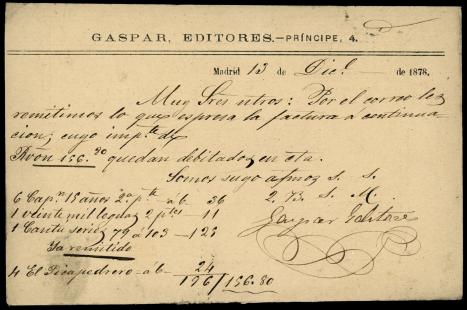 GASPAR, EDITORES.—PRÍNCIPE, 4.
Madrid 13 de Dic.e de 1878.
Muy Sres ntros: Por el correo les
remitimos lo que espresa la factura a continua
cion; cuyo imp.te de
Rvon 156.80 quedan debitados en cta.
Somos suyo afmos S. S.
2. B. S. M.
Gaspar Editores
6 Cap.n 15 años 2a pte a 6 36
1 veinte mil leguas 2 ptes 11
1 Cantu series 79 a 103 – 125
Ya remitido
4 El Picapedrero a 6 – 24
196/156.80